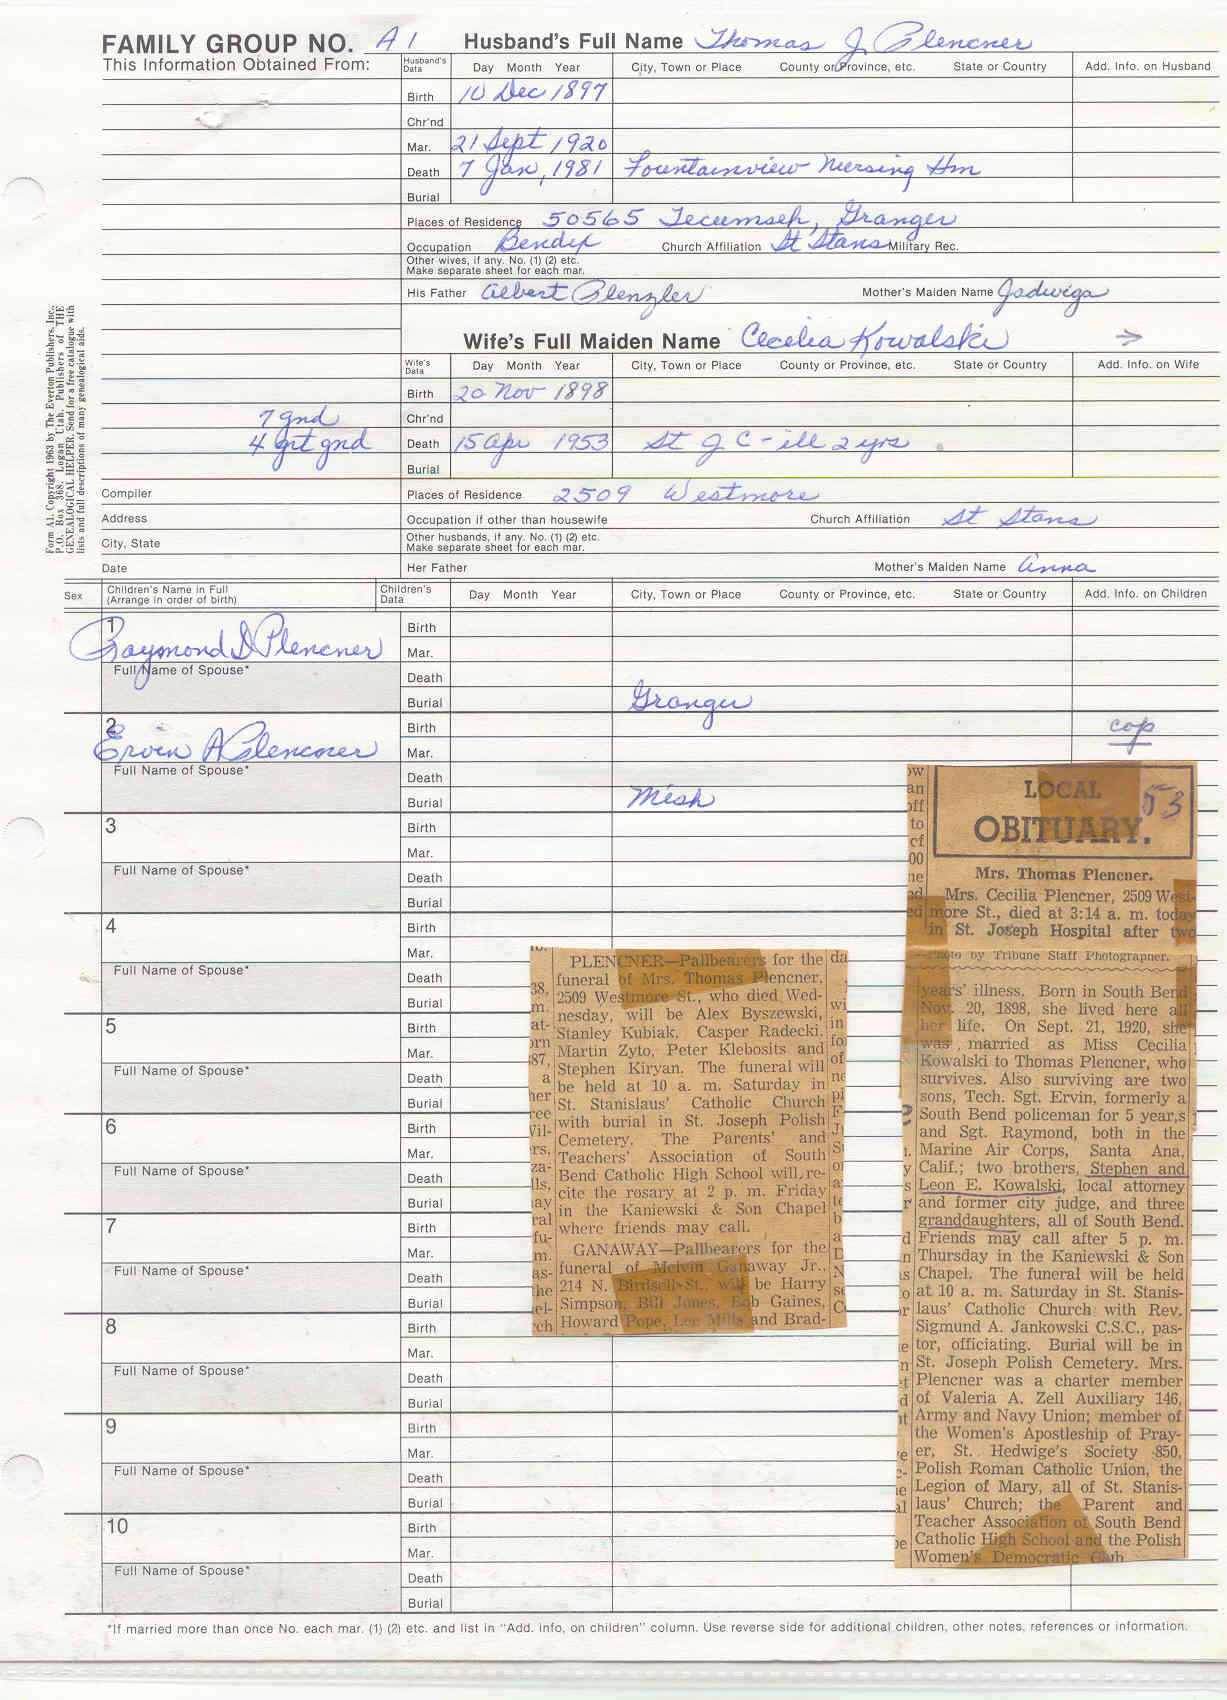 FAMILY GROUP NO. A1 Husband's Full Name Thomas J. Plencner
This Information Obtained From:
Husband's Data Day Month Year City, Town or Place County or Province, etc. State or Country Add. Info. on Husband
Birth 10 Dec 1897
Chr'nd
Mar. 21 Sept 1920
Death 7 Jan, 1981 Fountainview Nursing Hm
Burial
Places of Residence 50565 Tecumseh, Granger
Occupation Bendix Church Affiliation St Stans Military Rec.
Other wives, if any. No. (1) (2) etc.
Make separate sheet for each mar.
His Father Albert Plenzler Mother's Maiden Name Jadwiga
Wife's Full Maiden Name Cecilia Kowalski →
Wife's Data Day Month Year City, Town or Place County or Province, etc. State or Country Add. Info. on Wife
Birth 20 Nov 1898
7 gnd Chr'nd
4 grt gnd Death 15 Apr 1953 St J C - ill 2 yrs
Burial
Compiler Places of Residence 2509 Westmore
Address Occupation if other than housewife Church Affiliation St Stans
City, State Other husbands, if any. No. (1) (2) etc.
Make separate sheet for each mar.
Date Her Father Mother's Maiden Name Anna
Form A1. Copyright 1963 by The Everton Publishers, Inc.,
P.O. Box 368, Logan Utah. Publishers of THE
GENEALOGICAL HELPER. Send for a free catalogue with
lists and full descriptions of many genealogical aids.
Sex Children's Name in Full
(Arrange in order of birth) Children's Data Day Month Year City, Town or Place County or Province, etc. State or Country Add. Info. on Children
1 Birth
Raymond D Plencner Mar.
Full Name of Spouse* Death
Burial Granger
2 Birth cop
Ervin A Plencner Mar.
Full Name of Spouse* Death
Burial Mish
3 Birth
Mar.
Full Name of Spouse* Death
Burial
4 Birth
Mar.
Full Name of Spouse* Death
Burial
5 Birth
Mar.
Full Name of Spouse* Death
Burial
6 Birth
Mar.
Full Name of Spouse* Death
Burial
7 Birth
Mar.
Full Name of Spouse* Death
Burial
8 Birth
Mar.
Full Name of Spouse* Death
Burial
9 Birth
Mar.
Full Name of Spouse* Death
Burial
10 Birth
Mar.
Full Name of Spouse* Death
Burial
PLENCNER—Pallbearers for the
funeral of Mrs. Thomas Plencner,
2509 Westmore St., who died Wed-
nesday, will be Alex Byszewski,
Stanley Kubiak, Casper Radecki,
Martin Zyto, Peter Klebosits and
Stephen Kiryan. The funeral will
be held at 10 a. m. Saturday in
St. Stanislaus' Catholic Church
with burial in St. Joseph Polish
Cemetery. The Parents' and
Teachers' Association of South
Bend Catholic High School will re-
cite the rosary at 2 p. m. Friday
in the Kaniewski & Son Chapel
where friends may call.
GANAWAY—Pallbearers for the
funeral of Melvin Ganaway Jr.,
214 N. Birdsell St., will be Harry
Simpson, Bill Jones, Bob Gaines,
Howard Pope, Lee Mills and Brad-
LOCAL 53
OBITUARY.
Mrs. Thomas Plencner.
Mrs. Cecilia Plencner, 2509 West-
more St., died at 3:14 a. m. today
in St. Joseph Hospital after two
—Photo by Tribune Staff Photographer.
years' illness. Born in South Bend
Nov. 20, 1898, she lived here all
her life. On Sept. 21, 1920, she
was married as Miss Cecilia
Kowalski to Thomas Plencner, who
survives. Also surviving are two
sons, Tech. Sgt. Ervin, formerly a
South Bend policeman for 5 year,s
and Sgt. Raymond, both in the
Marine Air Corps, Santa Ana,
Calif.; two brothers, Stephen and
Leon E. Kowalski, local attorney
and former city judge, and three
granddaughters, all of South Bend.
Friends may call after 5 p. m.
Thursday in the Kaniewski & Son
Chapel. The funeral will be held
at 10 a. m. Saturday in St. Stanis-
laus' Catholic Church with Rev.
Sigmund A. Jankowski C.S.C., pas-
tor, officiating. Burial will be in
St. Joseph Polish Cemetery. Mrs.
Plencner was a charter member
of Valeria A. Zell Auxiliary 146,
Army and Navy Union; member of
the Women's Apostleship of Pray-
er, St. Hedwige's Society 850,
Polish Roman Catholic Union, the
Legion of Mary, all of St. Stanis-
laus' Church; the Parent and
Teacher Association of South Bend
Catholic High School and the Polish
Women's Democratic Club
*If married more than once No. each mar. (1) (2) etc. and list in "Add. info, on children" column. Use reverse side for additional children, other notes, references or information.